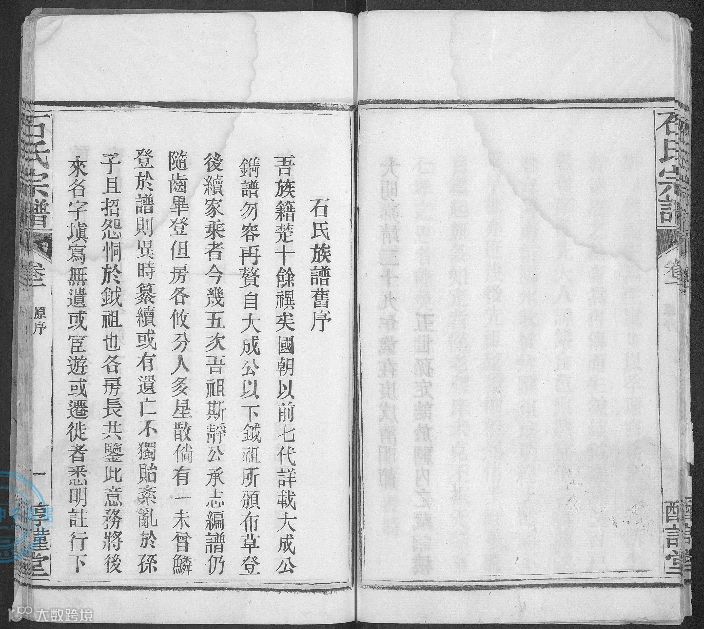 石氏族譜舊序
吾族籍楚十餘禩矣國朝以前七代詳載大成公
鎸譜勿容再贅自大成公以下鉞祖所頒布草登
後續家乘者今幾五次吾祖斯靜公承志編譜仍
隨齒畢登但房各攸分人多星散倘有一未曾鱗
登於譜則異時纂續或有遺亡不獨貽紊亂於孫
子且招怨恫於鉞祖也各房長共鑒此意務將後
來名字塡寫無遺或宦遊或遷徙者悉明註行下
石氏宗譜
卷一
原序
一
石氏宗譜
卷一
大數跨境